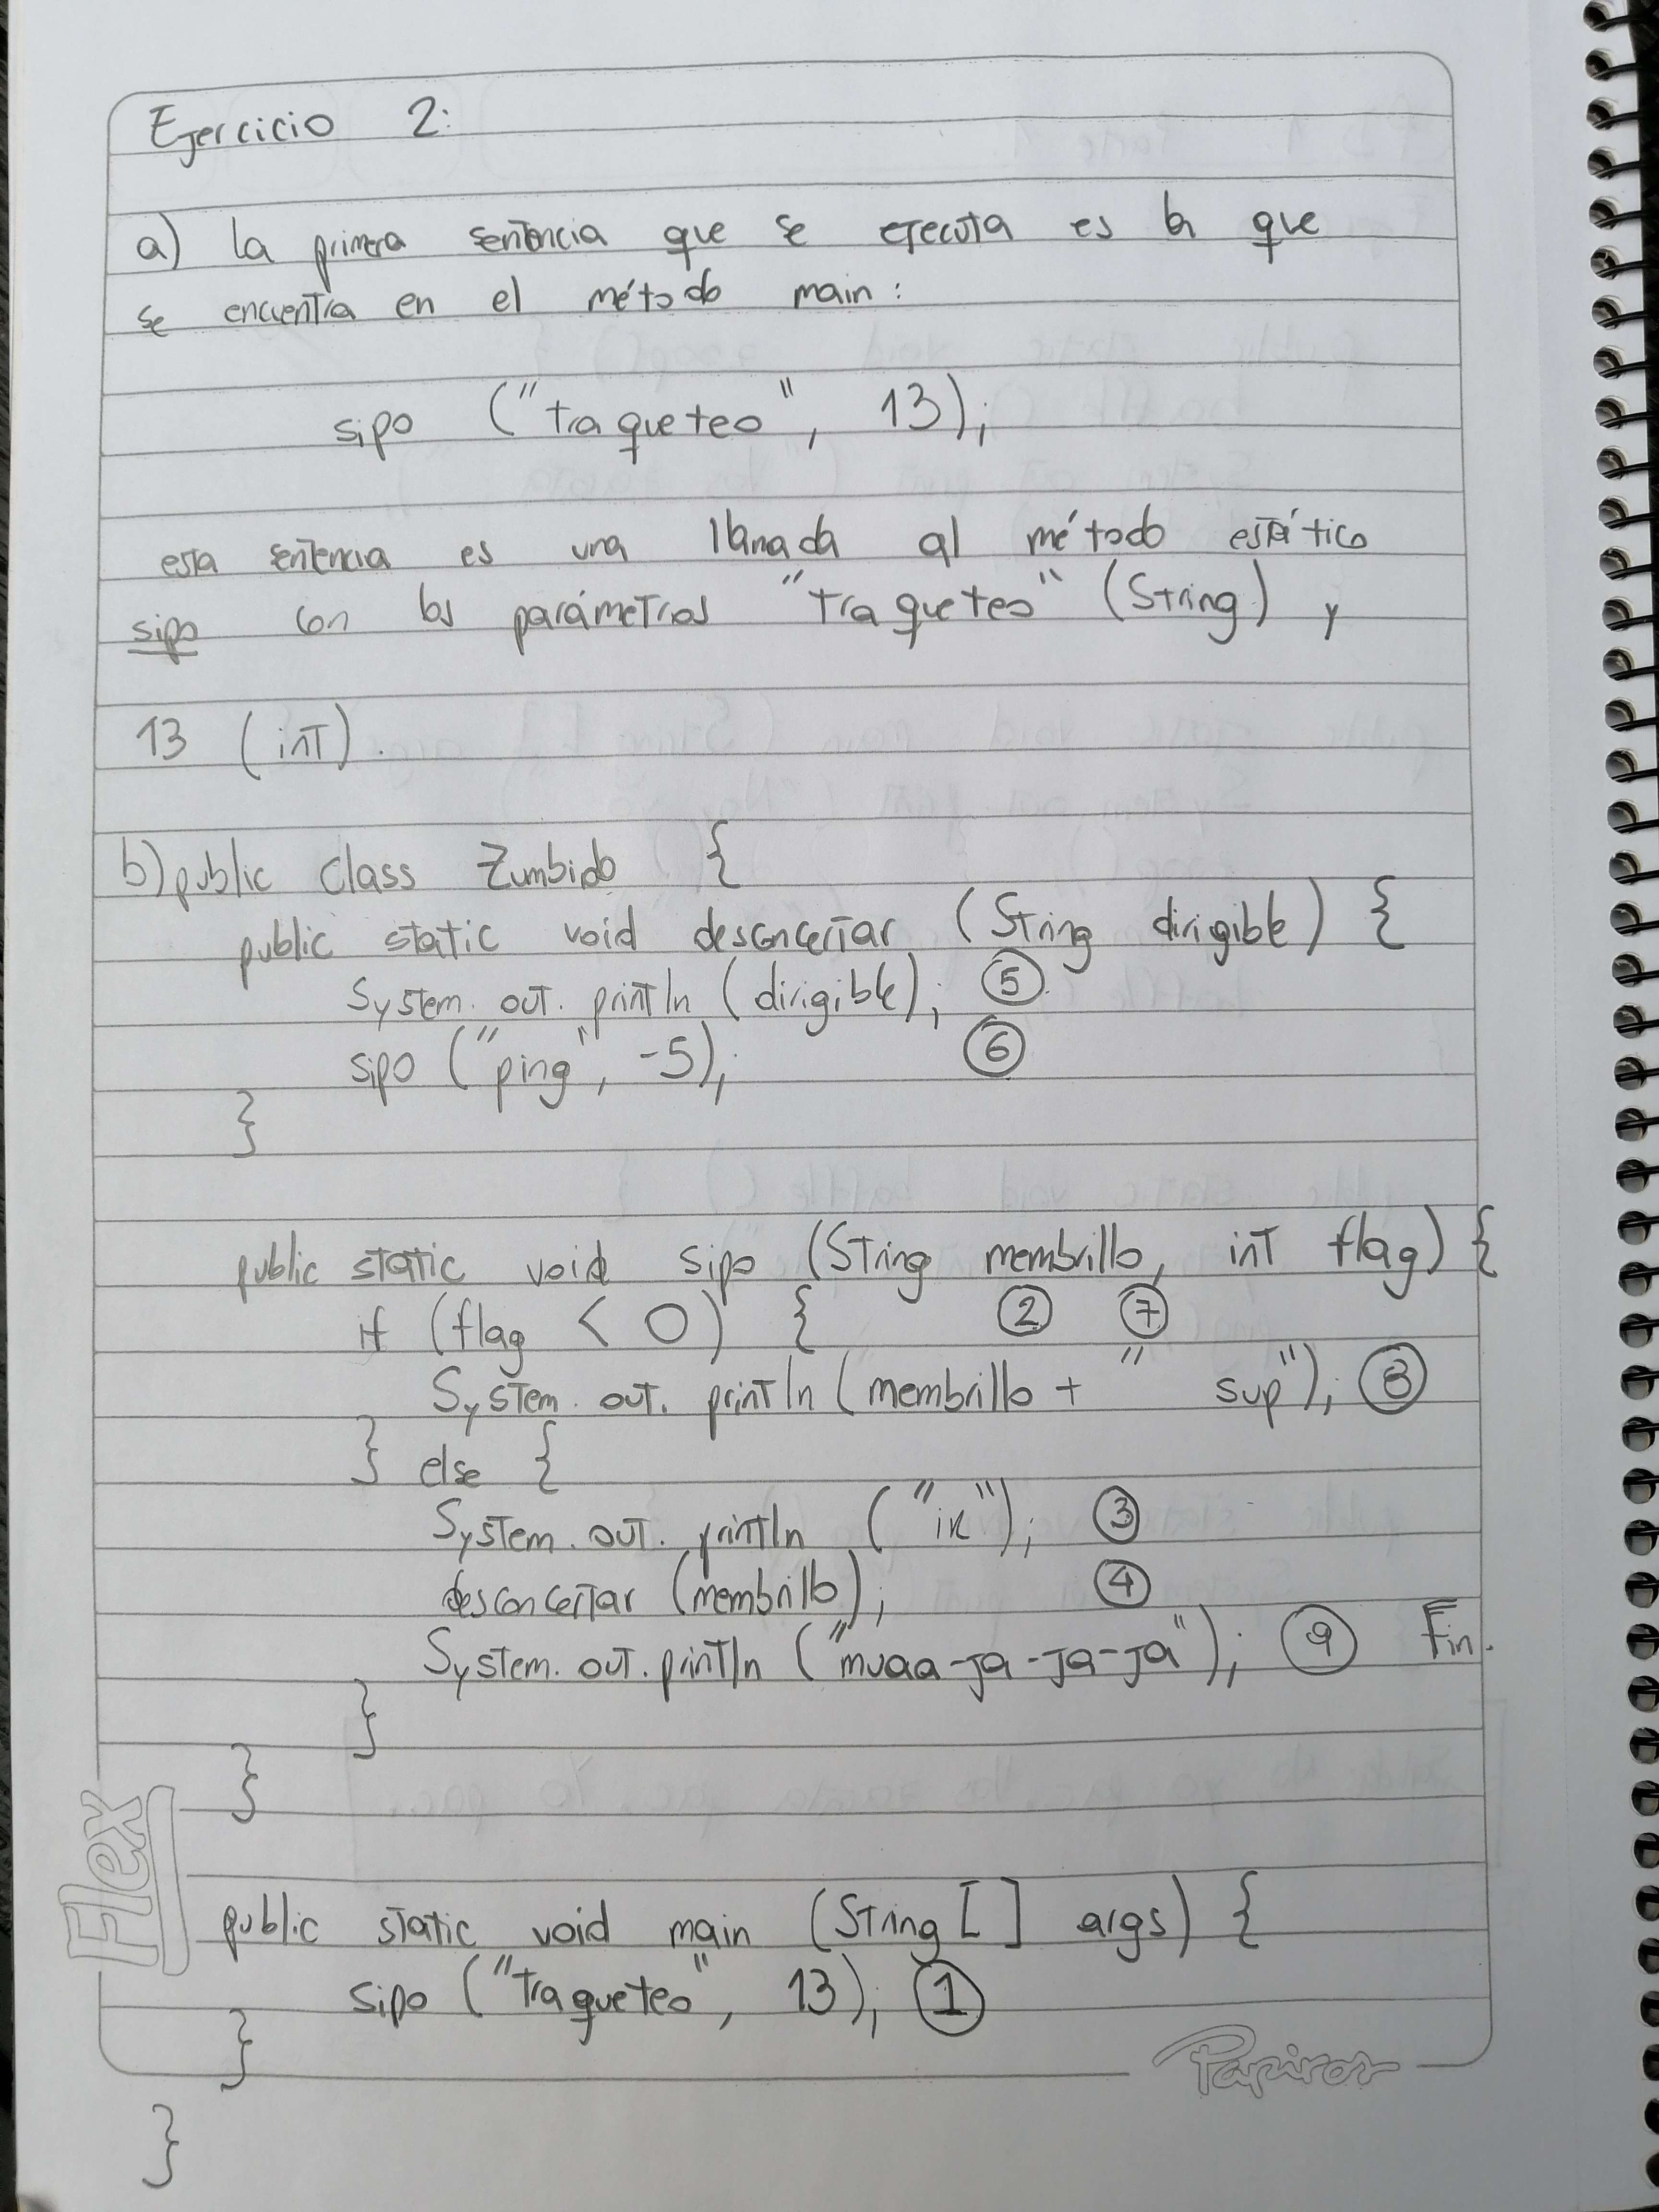 Ejercicio 2:
a) la primera sentencia que se ejecuta es la que
se encuentra en el método main:
sipo ("traqueteo", 13);
esta sentencia es una llamada al método estático
sipo con los parámetros "traqueteo" (String) y
13 (int).
b) public class Zumbido {
public static void desconcertar (String dirigible) {
System.out.println (dirigible); 5
sipo ("ping", -5); 6
}
public static void sipo (String membrillo, int flag) {
if (flag < 0) { 2 7
System.out.println (membrillo + " sup"); 8
} else {
System.out.println ("ik"); 3
desconcertar (membrillo); 4
System.out.println ("muaa-ja-ja-ja"); 9 Fin.
}
}
public static void main (String [ ] args) {
sipo ("traqueteo", 13); 1
}
}
Flex
Papiros